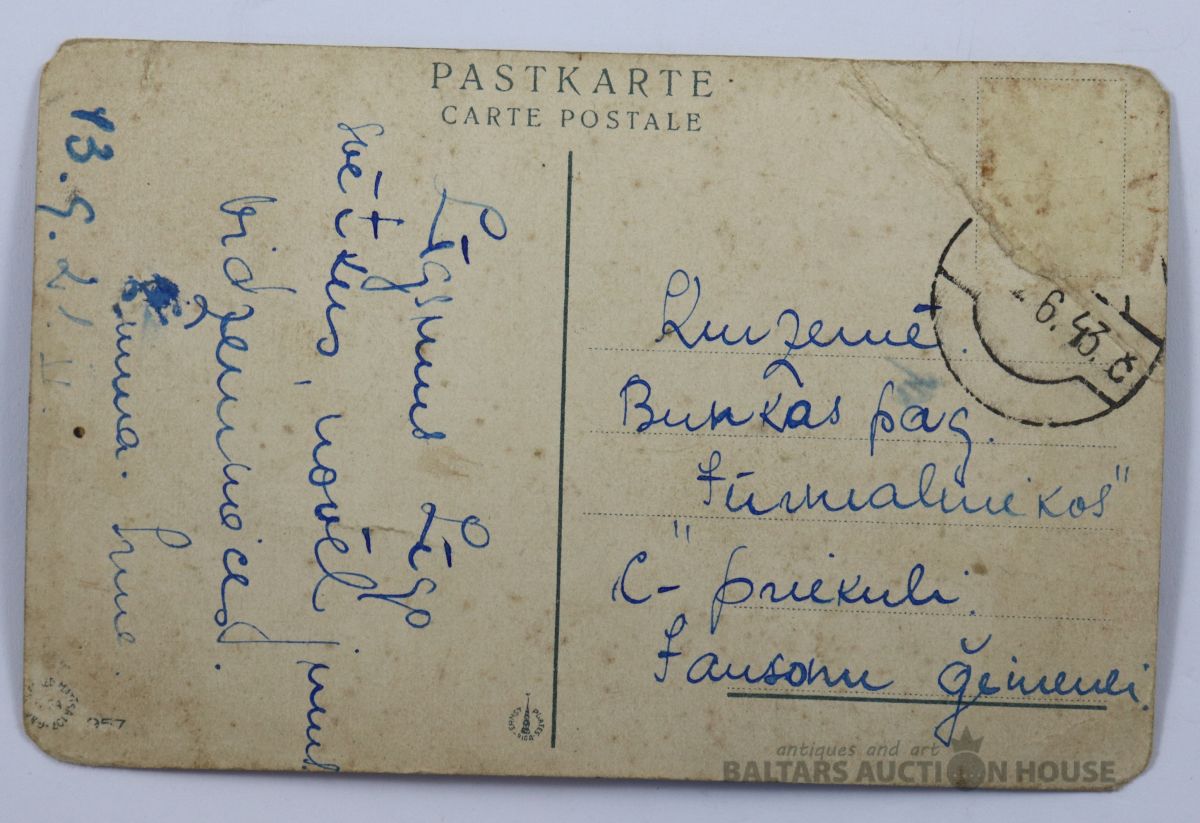 PASTKARTE
CARTE POSTALE
Līgsmus Līgo
svētkus novēl jums
vidzemnieces.
Emma.
Kurzemē.
Bunkas pag.
"Jūrmalniekos"
C- Priekuli.
Jansonu ģimenei.
6.43.
257
antiques and art
BALTARS AUCTION HOUSE